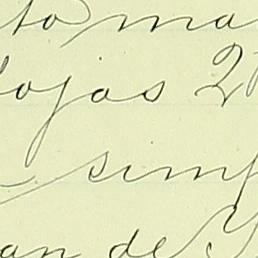 to ma
ojas 2
simp
an de Y